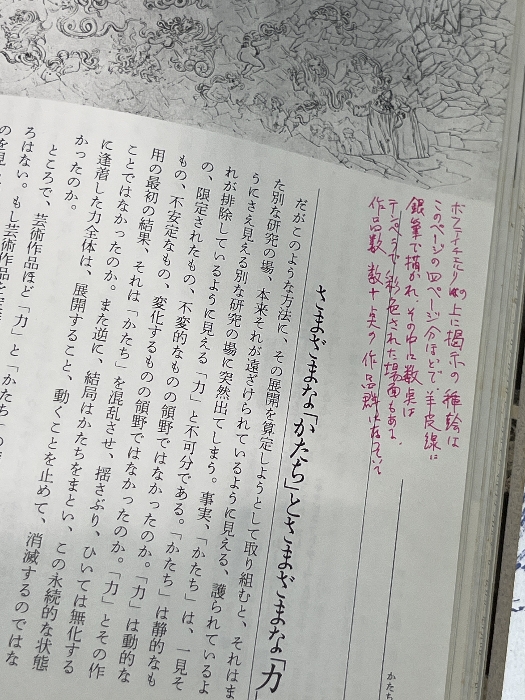 ボッティチェルリの上に掲示の種絵は
このページの四ページ分ほどで、羊皮線に
銀筆で描かれ、その中に数点は
テンペラで彩色された場面もある。
作品数 数十点の作品群
さまざまな「かたち」とさまざまな「力
だがこのような方法に、その展開を算定しようとして取り組むと、それはま
た別な研究の場、本来それが遠ざけられているように見える、護られているよ
うにさえ見える別な研究の場に突然出てしまう。事実、「かたち」は、一見そ
れが排除しているように見える「力」と不可分である。「かたち」は静的なも
の、限定されたもの、不変的なものの領野ではなかったのか。「力」は動的な
もの、不安定なもの、変化するものの領野ではなかったのか。「力」とその作
用の最初の結果、それは「かたち」を混乱させ、揺さぶり、ひいては無化する
ことではなかったのか。また逆に、結局はかたちをまとい、この永続的な状態
に逢着した力全体は、展開すること、動くことを止めて、消滅するのではな
かったのか。
ところで、芸術作品ほど「力」と「かたち」の
ろはない。もし芸術作品を
のを見
かたち